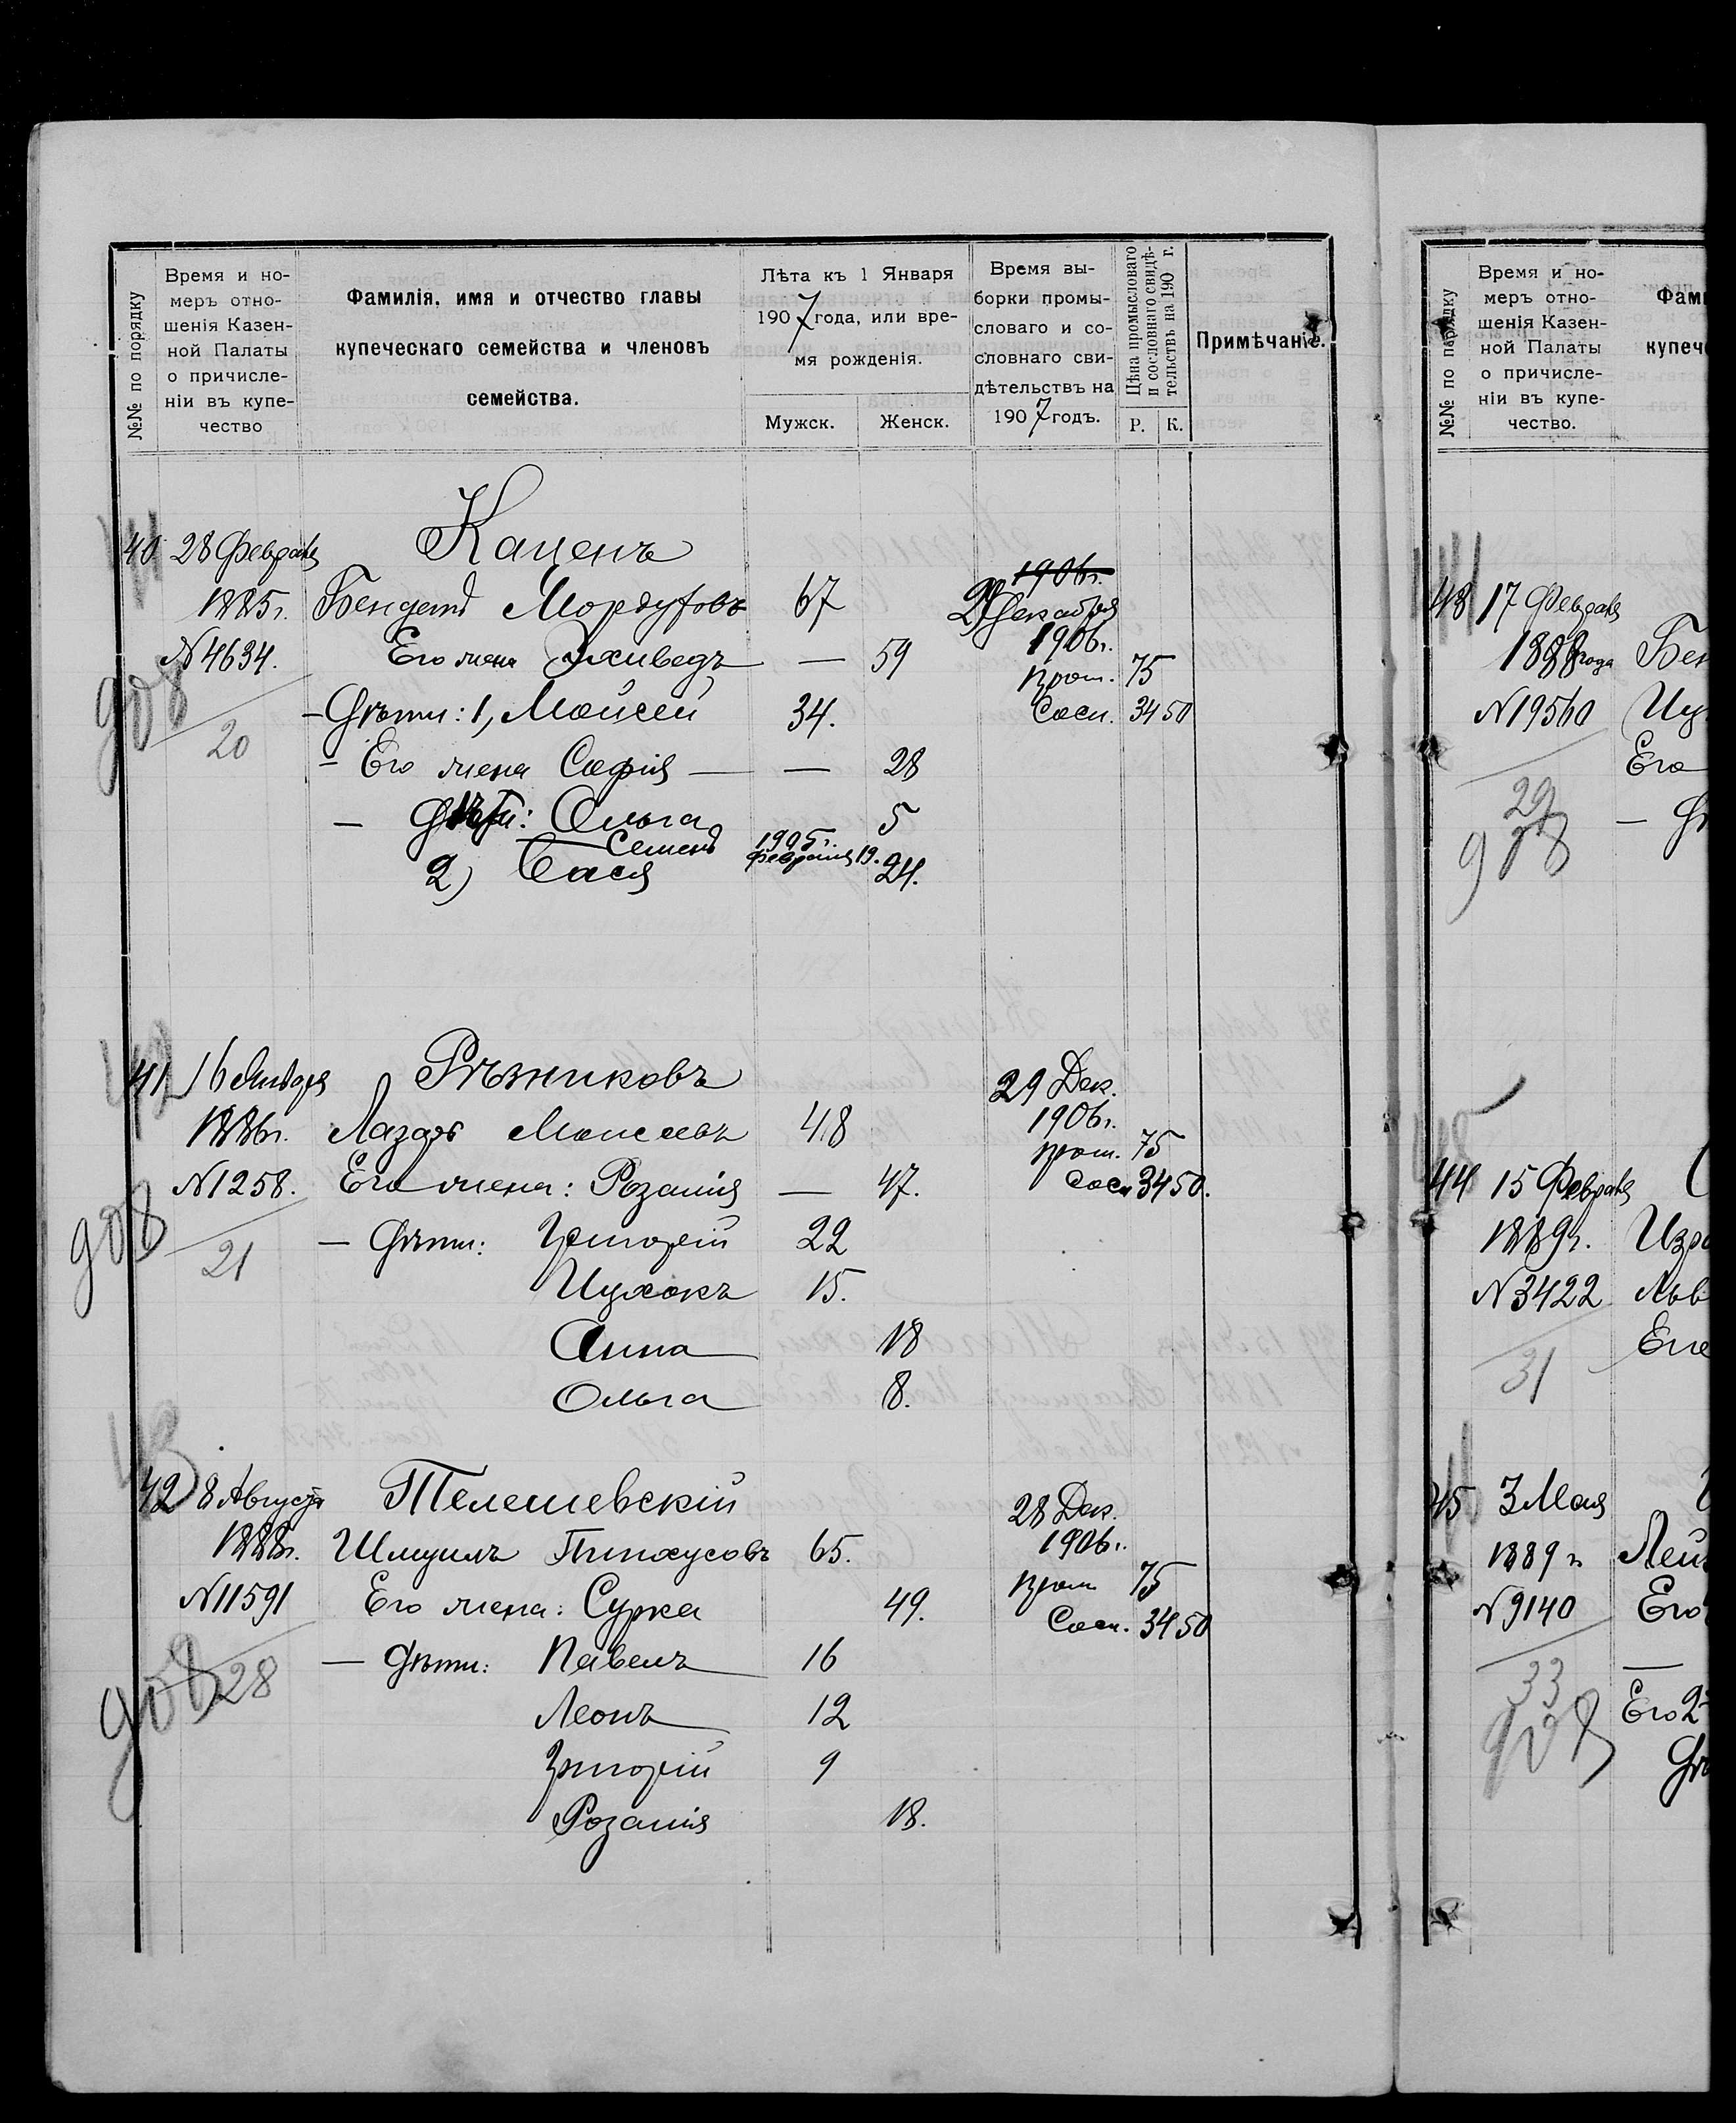 №№ по порядку
Время и но-
меръ отно-
шенія Казен-
ной Палаты
о причисле-
ніи въ купе-
чество
Фамилія, имя и отчество главы
купеческаго семейства и членовъ
семейства.
Лѣта къ 1 Января
1907 года, или вре-
мя рожденія.
Мужск.
Женск.
Время вы-
борки промы-
словаго и со-
словнаго сви-
дѣтельствъ на
1907 годъ.
Цѣна промысловаго
и сословнаго свидѣ-
тельствъ на 190 г.
Р. К.
Примѣчаніе.
40 28 Февраля Каценъ
1906г.
1885г. Бендетъ Мордуховъ 67 29 Декабря
1906г.
№4634. Его жена Эхиведъ — 59
пром. 75
908
— Дѣти: 1, Моисей 34. Сосл. 34 50
20
— Его жена Софія — — 28
— Дѣти: Ольга 5
Семенъ 1905г. Февраля 19.
2) Бася 24.
41 16 Января Рѣзниковъ 29 Дек.
1886г. Лазарь Моисеевъ 48 1906г.
пром. 75
№1258. Его жена: Розалія — 47. Сосл 34 50.
908
21
— Дѣти: Григорій 22
Ицхокъ 15.
Анна 18
Ольга 8.
43
42 8 Августа Телешевскій 28 Дек.
1888г. Шмуилъ Пинхусовъ 65. 1906г.
пром 75
№11591 Его жена: Сурка 49. Сосл. 34 50
908
28
— Дѣти: Павелъ 16
Леонъ 12
Григорій 9
Розалія 18.
№№ по порядку
Время и но-
меръ отно-
шенія Казен-
ной Палаты
о причисле-
ніи въ купе-
чество.
Фам
купеч
43 17 Февраля
1888 года Бен
№19560 Иц
Его
29
908
— Дѣ
44 15 Февраля
1889г. Изра
№3422 Льв
Его
31
45 3 Мая
1889г Лей
№9140 Его
33
908
Его 2
Дѣ